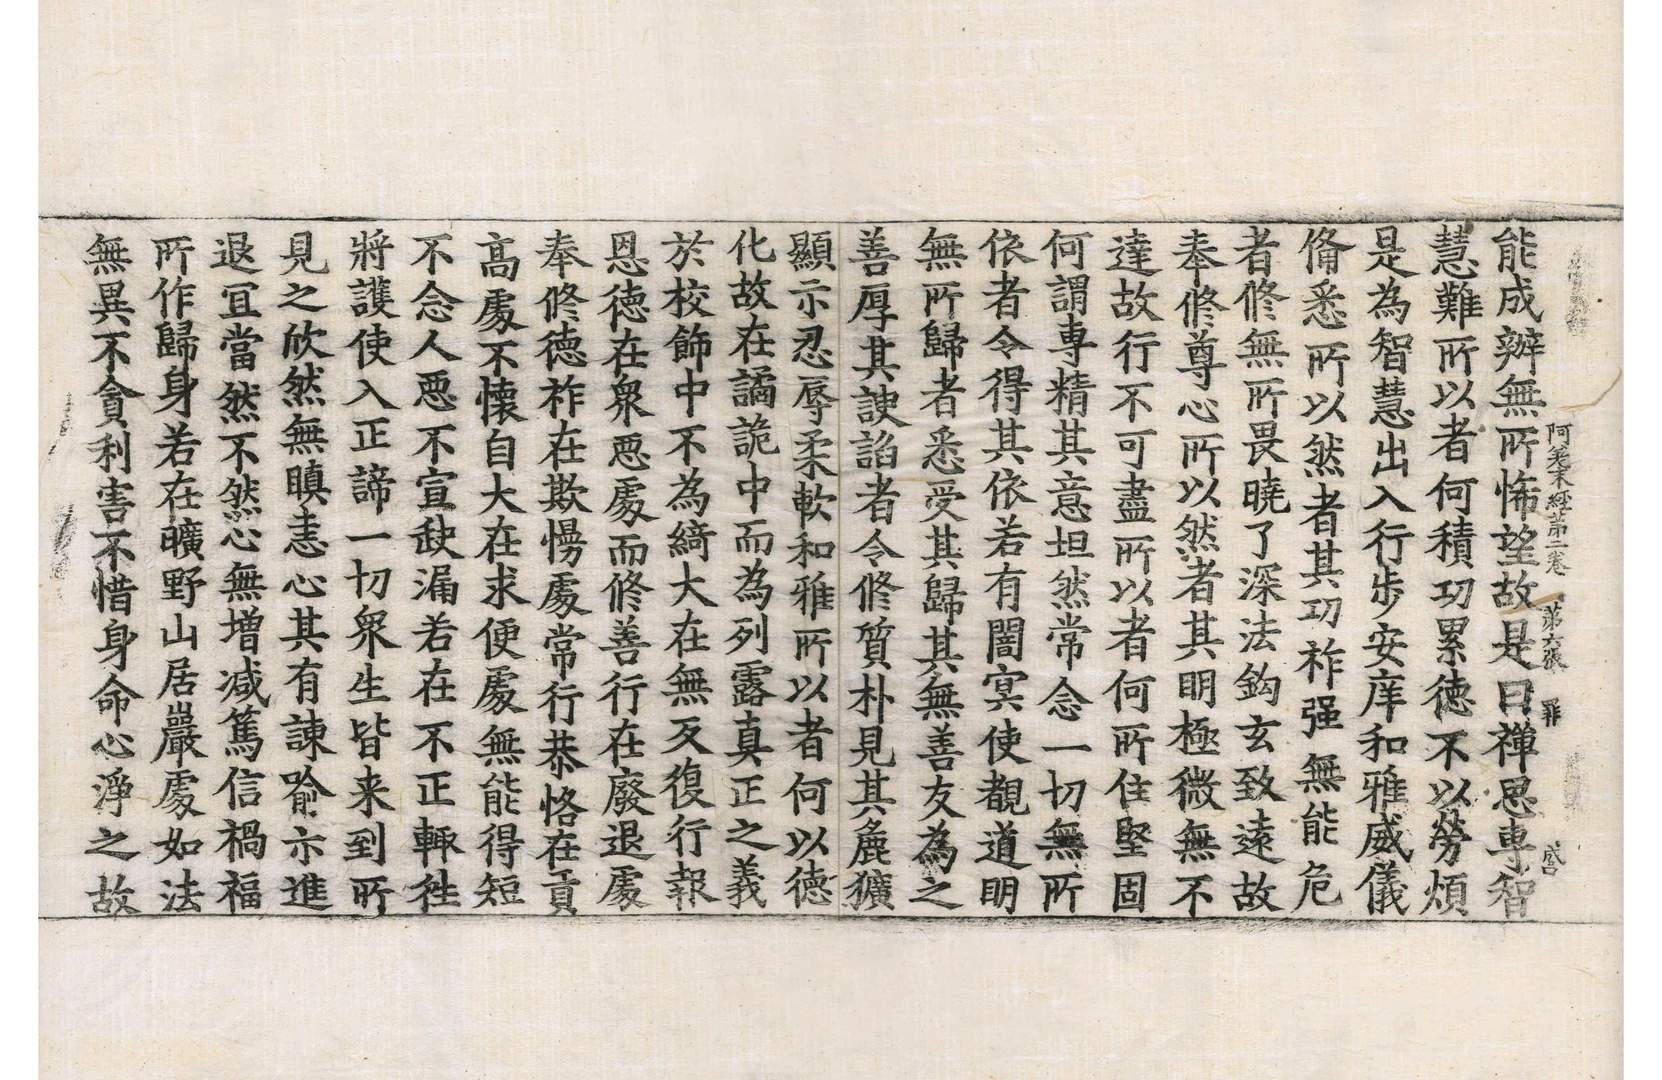 阿差末經第二卷　第六張　罪
能成辦無所悕望故是曰禪思專智
慧難所以者何積功累德不以勞煩
是為智慧出入行步安庠和雅威儀
俻悉所以然者其功祚强無能危
者修無所畏曉了深法鈎玄致遠故
奉修尊心所以然者其明極微無不
達故行不可盡所以者何所住堅固
何謂專精其意坦然常念一切無所
依者令得其依若有闇冥使覩道明
無所歸者悉受其歸其無善友為之
善厚其諛諂者令修質朴見其麁獷
顯示忍辱柔軟和雅所以者何以德
化故在譎詭中而為列露真正之義
於校飾中不為綺大在無反復行報
恩德在衆惡處而修善行在廢退處
奉修德祚在欺慢處常行恭恪在貢
高處不懷自大在求便處無能得短
不念人惡不宣缺漏若在不正輙徃
將護使入正諦一切衆生皆来到所
見之欣然無瞋恚心其有諫喻亦進
退宜當然不然心無増减篤信禍福
所作歸身若在曠野山居巖處如法
無異不貪利害不惜身命心淨之故